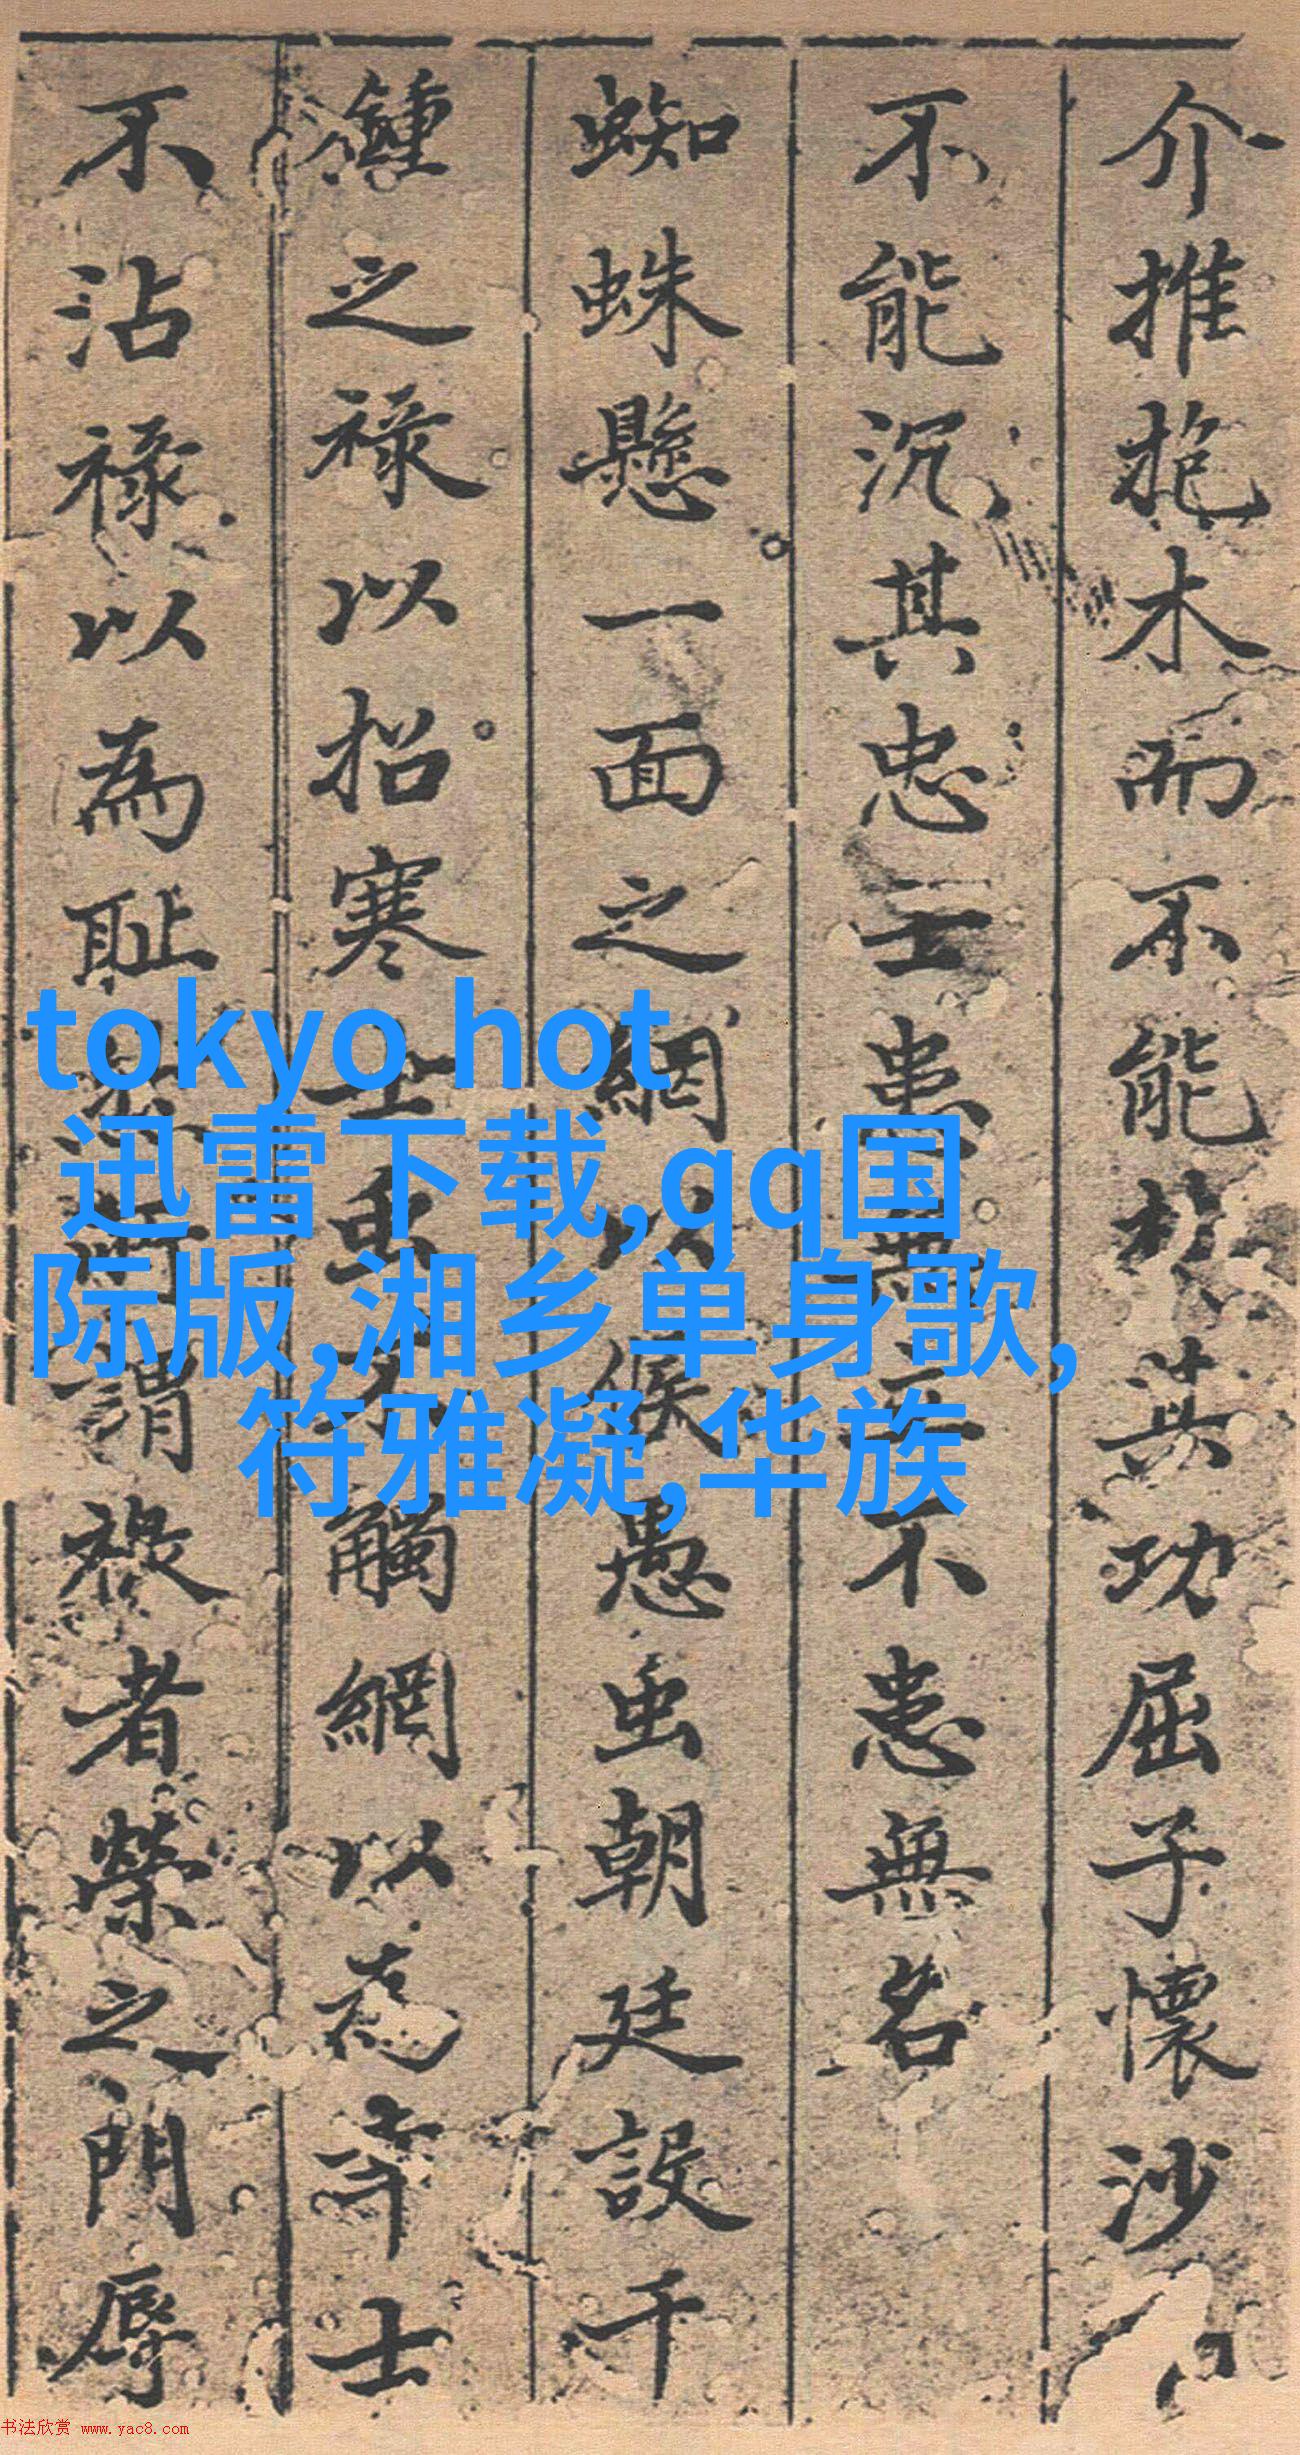 介推抱木而不能其功屈子懷沙
不能沉其忠士患無不患無名
蜘蛛懸一面之網以候愚虫朝廷設千
鍾之祿以招寒士虫不觸網以為士
不沾祿以為耻所謂祿者榮之門辱
tokyo hot
迅雷下载,qq国
际版,湘乡单身歌,
符雅凝,华族
书法欣赏 www.yac8.com